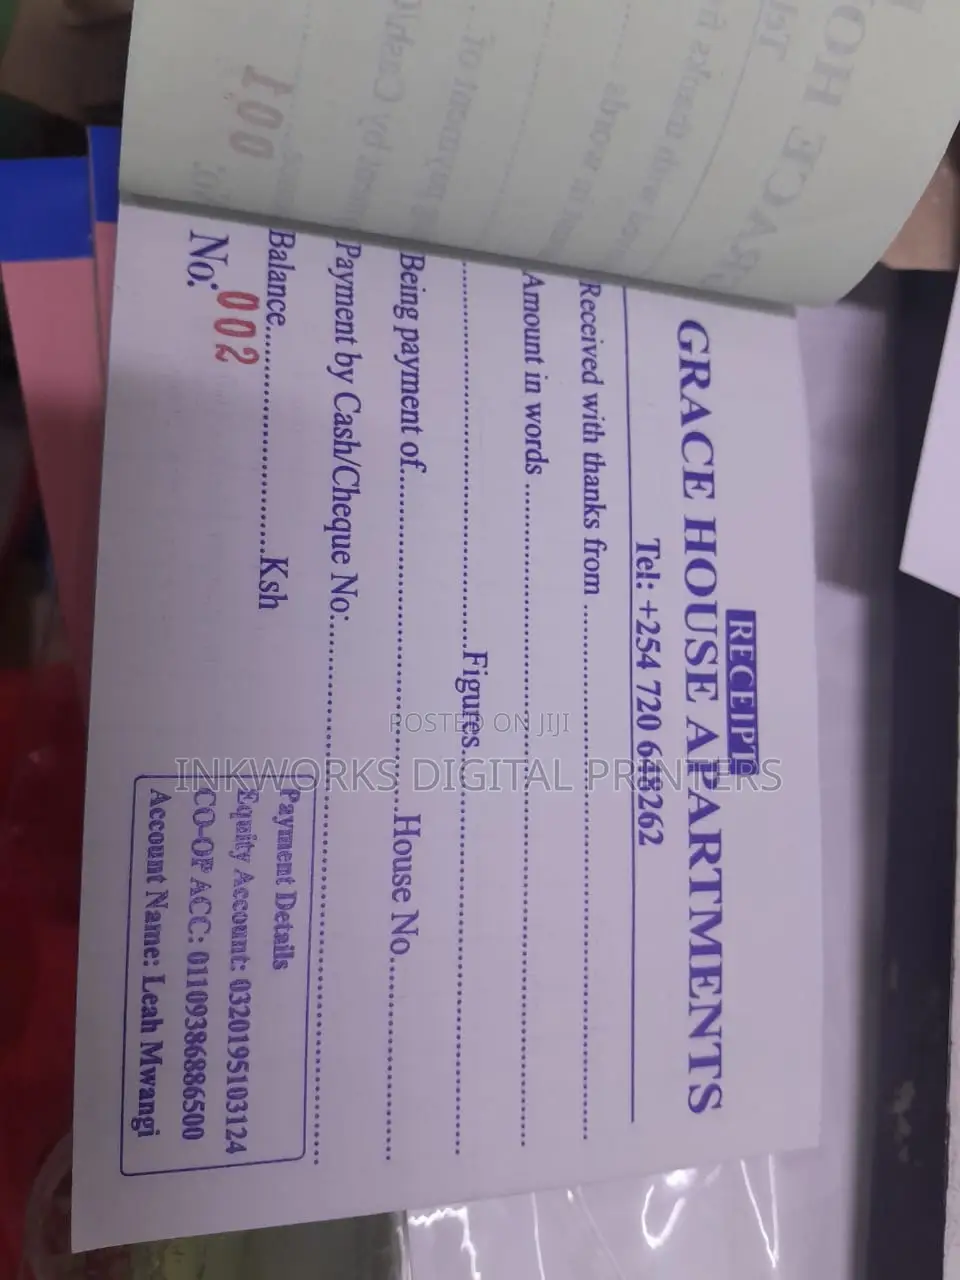 RECEIPT
GRACE HOUSE APARTMENTS
Tel: +254 720 648262
Received with thanks from ........................................
Amount in words ........................................
........................................Figures........................................
Being payment of........................................House No........................
Payment by Cash/Cheque No:........................................
Balance..............................Ksh
No: 002
Payment Details
Equity Account: 0320195103124
CO-OP ACC: 01109386886500
Account Name: Leah Mwangi
001
POSTED ON JIJI
INKWORKS DIGITAL PRINTERS